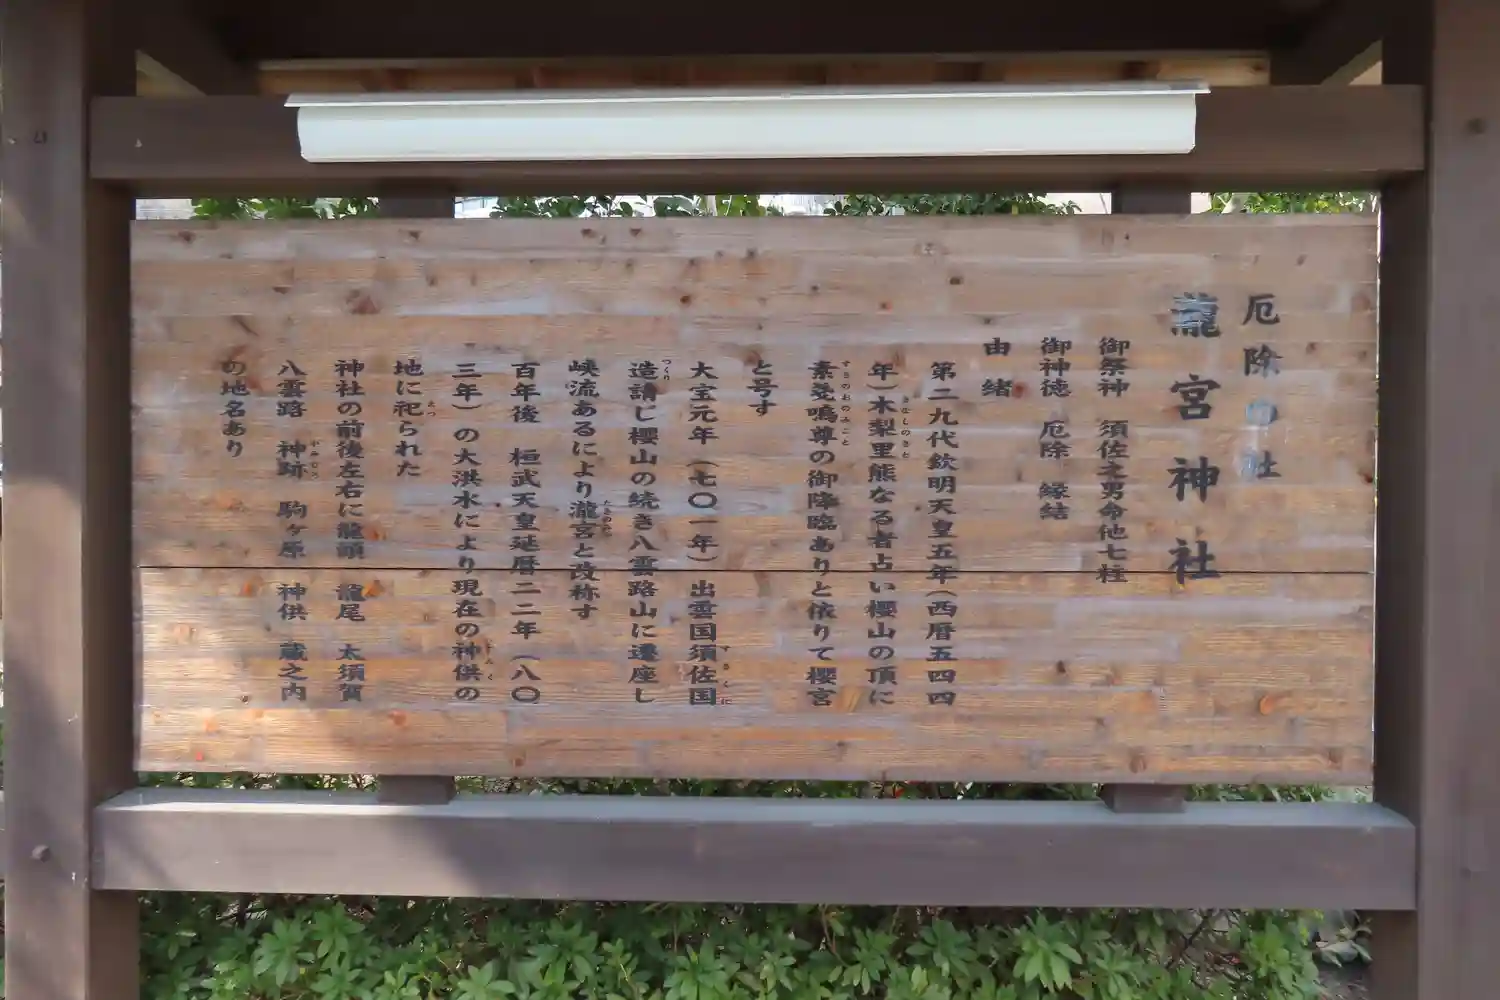 厄除の社
瀧宮神社
御祭神　須佐之男命他七柱
御神徳　厄除　縁結
由緒
第二九代欽明天皇五年（西暦五四四
年）木梨里熊なる者占い櫻山の頂に
素戔嗚尊の御降臨ありと依りて櫻宮
と号す
大宝元年（七〇一年）出雲国須佐国
造請じ櫻山の続き八雲路山に遷座し
峡流あるにより瀧宮と改称す
百年後　桓武天皇延暦二二年（八〇
三年）の大洪水により現在の神供の
地に祀られた
神社の前後左右に龍頭　龍尾　太須賀
八雲路　神跡　駒ヶ原　神供　蔵之内
の地名あり